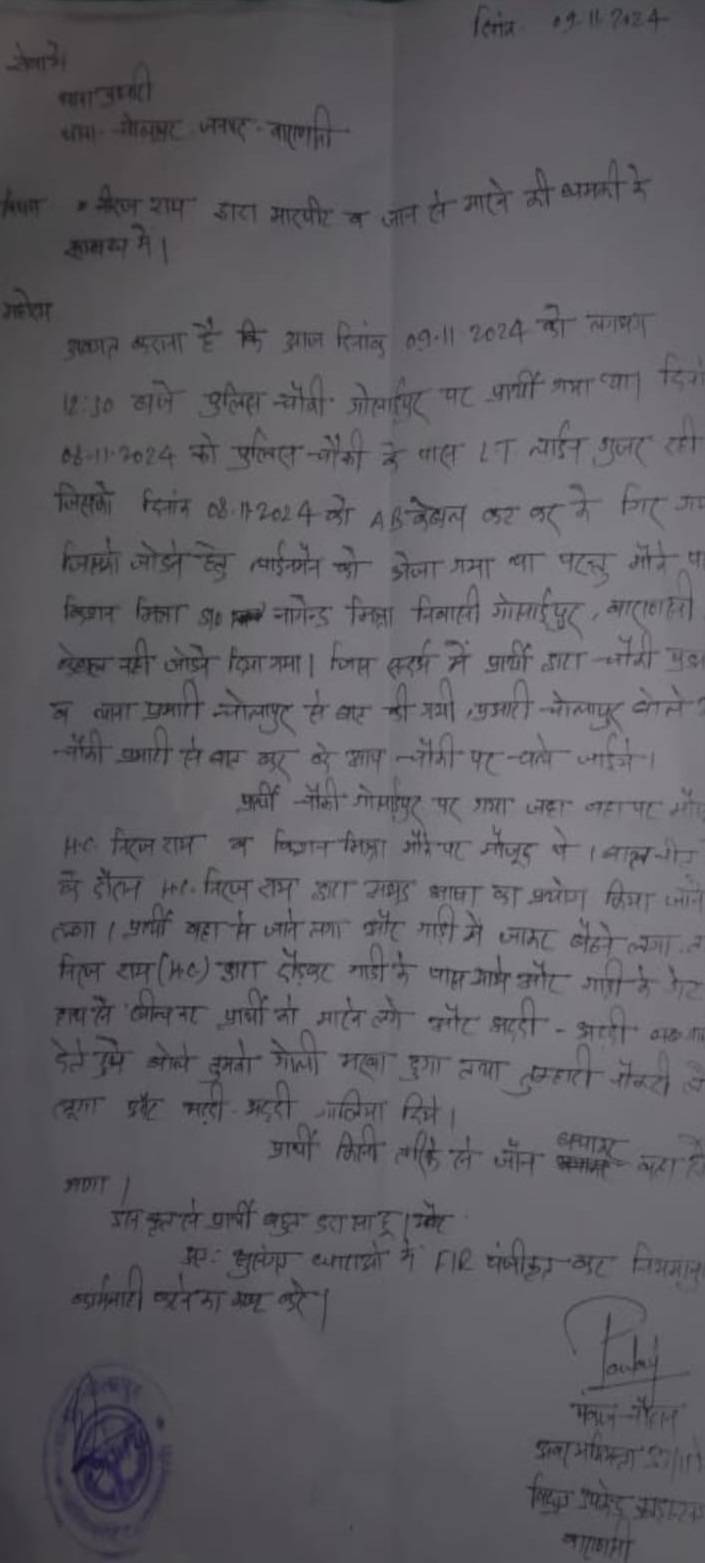 दिनांक 09-11-2024
सेवा में
थाना प्रभारी
थाना - चोलापुर जनपद - वाराणसी
विषय - नीरज राय द्वारा मारपीट व जान से मारने की धमकी के
सम्बन्ध में।
महोदय
अवगत कराना है कि आज दिनांक 09-11 2024 को लगभग
12:30 बजे पुलिस चौकी गोसाईपुर पर प्रार्थी गया था।
08-11-2024 को पुलिस चौकी के पास LT लाईन गुजर रही
जिसको दिनांक 08-11-2024 को AB केबल कट कर के गिर
जिसको जोडने हेतु लाईनमैन को भेजा गया था परन्तु मौके
किशन मिश्रा S/o नागेन्द्र मिश्रा निवासी गोसाईपुर, वाराणसी
केबल नही जोडने दिया गया। जिस सन्दर्भ में प्रार्थी द्वारा चौकी
व थाना प्रभारी चोलापुर से बात की गयी, प्रभारी चोलापुर बोले
चौकी प्रभारी से बात कर के आप चौकी पर चले जाईये।
प्रार्थी चौकी गोसाईपुर पर गया जहा वहा पर
H.C. निरज राय व किशन मिश्रा मौके पर मौजूद थे।
के दौरान H.C. निरज राय द्वारा अभद्र भाषा का प्रयोग किया जाने
लगा। प्रार्थी वहा से जाने लगा और गाडी में जाकर बैठने लगा
निरज राय (H.C) द्वारा दौड़कर गाडी के पास आये और गाडी के गेट
प्रार्थी को मारने लगे और भद्दी - भद्दी
देते हुये बोले तुमको गोली मरवा दुगा तथा तुम्हारी नौकरी
लूगा और भद्दी-भद्दी गालिया दिये।
प्रार्थी किसी तरिके से जॉन बचाकर वहा
गया।
इस कृत्य से प्रार्थी बहुत डरा सा हूँ।
अतः सुसंगत धाराओ में FIR पंजीकृत कर
कार्यवाही करने का कष्ट करे।
वाराणसी